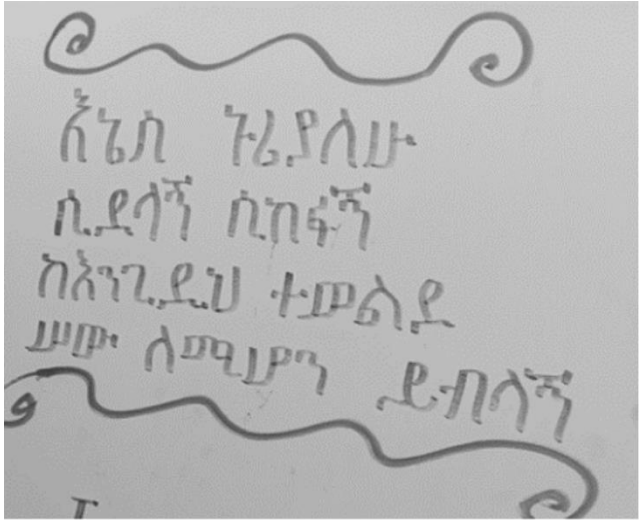 እኔስ ኑሬያለሁ
ሲደላኝ ሲከፋኝ
ከእንጊዲህ ተወልደ
ሠው ለሚሆን ይብላኝ